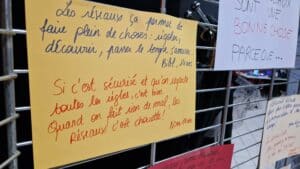 Les réseaux ça permet de
faire plein de choses : rigoler,
découvrir, passer le temps, s'amuser
Si c'est sécurisé et qu'on respecte
toutes les règles, c'est bien.
Quand on fait rien de mal, les
Réseaux c'est chouette !
SONT
UNE
BONNE CHOSE
PARCE QUE...